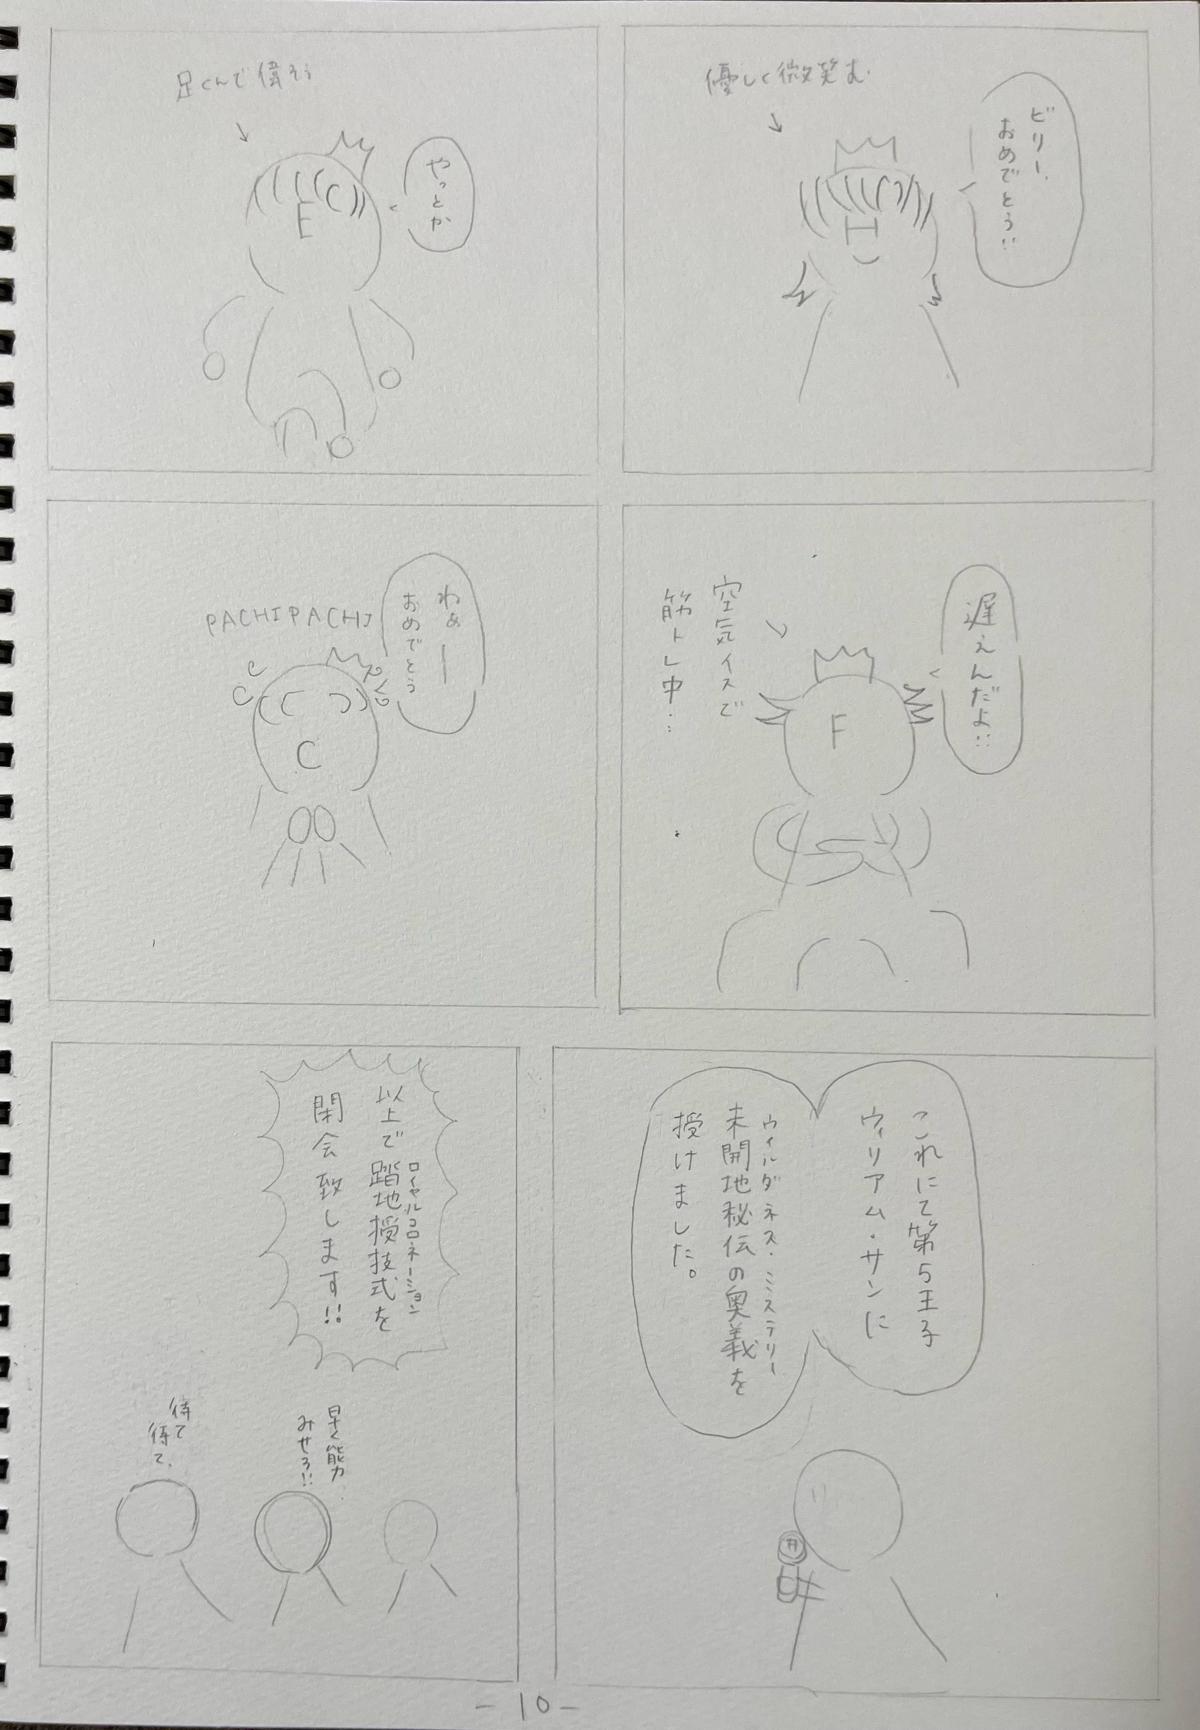 優しく微笑む
ビリー、
おめでとう!!
H
足くんで偉そう
やっとか
E
遅えんだよ!!
空気イスで
筋トレ中…
F
わぁー
おめでとう
PACHIPACHI
C
これにて第5王子
ウィリアム・サンに
ウィルダネス・ミステリー
未開地秘伝の奥義を
授けました。
ロイヤルコロネーション
以上で踏地授技式を
閉会致します!!
早く能力
みせろ!!
待て
待て、
-10-